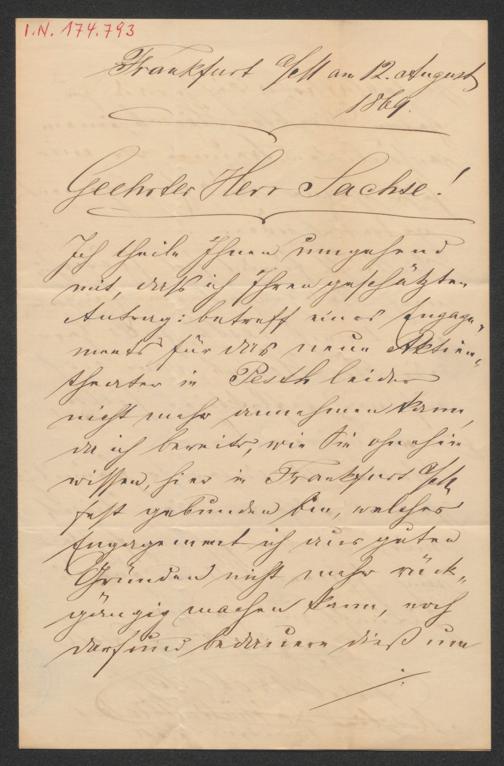 I.N. 174.793
Frankfurt a/M am 12. August
1869.
Geehrter Herr Sachse!
Ich theile Ihnen umgehend
mit, daß ich Ihren geschätzten
Antrag: betreff eines Engage-
ments für das neue Aktien-
theater in Pesth leider
nicht mehr annehmen kann,
da ich bereits, wie Sie ohnehin
wissen, hier in Frankfurt a/M
fest gebunden bin, welches
Engagement ich aus guten
Gründen nicht mehr rück-
gängig machen kann, noch
darf und bedauere dieß um
./.